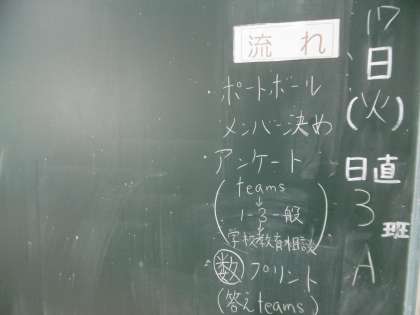 17
日
(火)
日直
3
班
A
流れ
・ポートボール
メンバー決め
・アンケート
(teams
↓
1-3一般
↓
学校教育相談)
・㊙数 プリント
(答えteams)